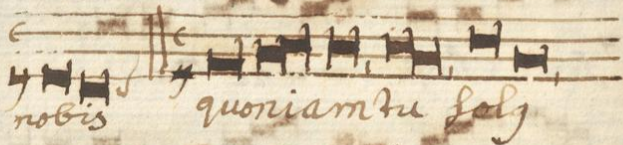 nobis quoniam tu solꝯ